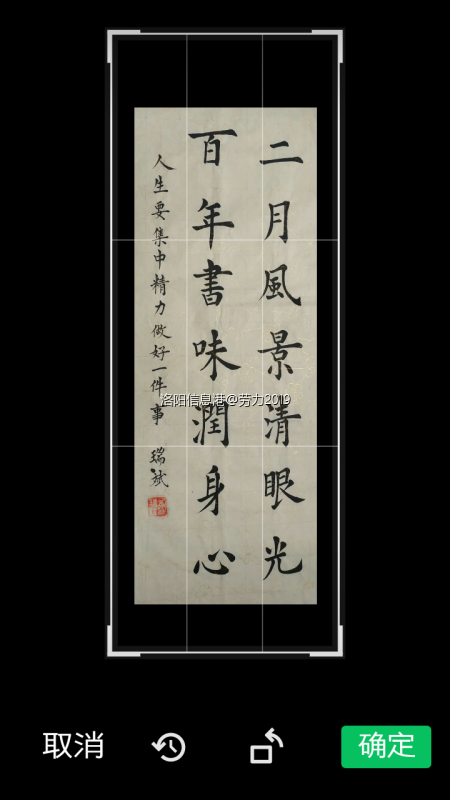 二月風景清眼光
百年書味潤身心
人生要集中精力做好一件事
瑞斌
洛阳信息港@劳力2019
取消
确定